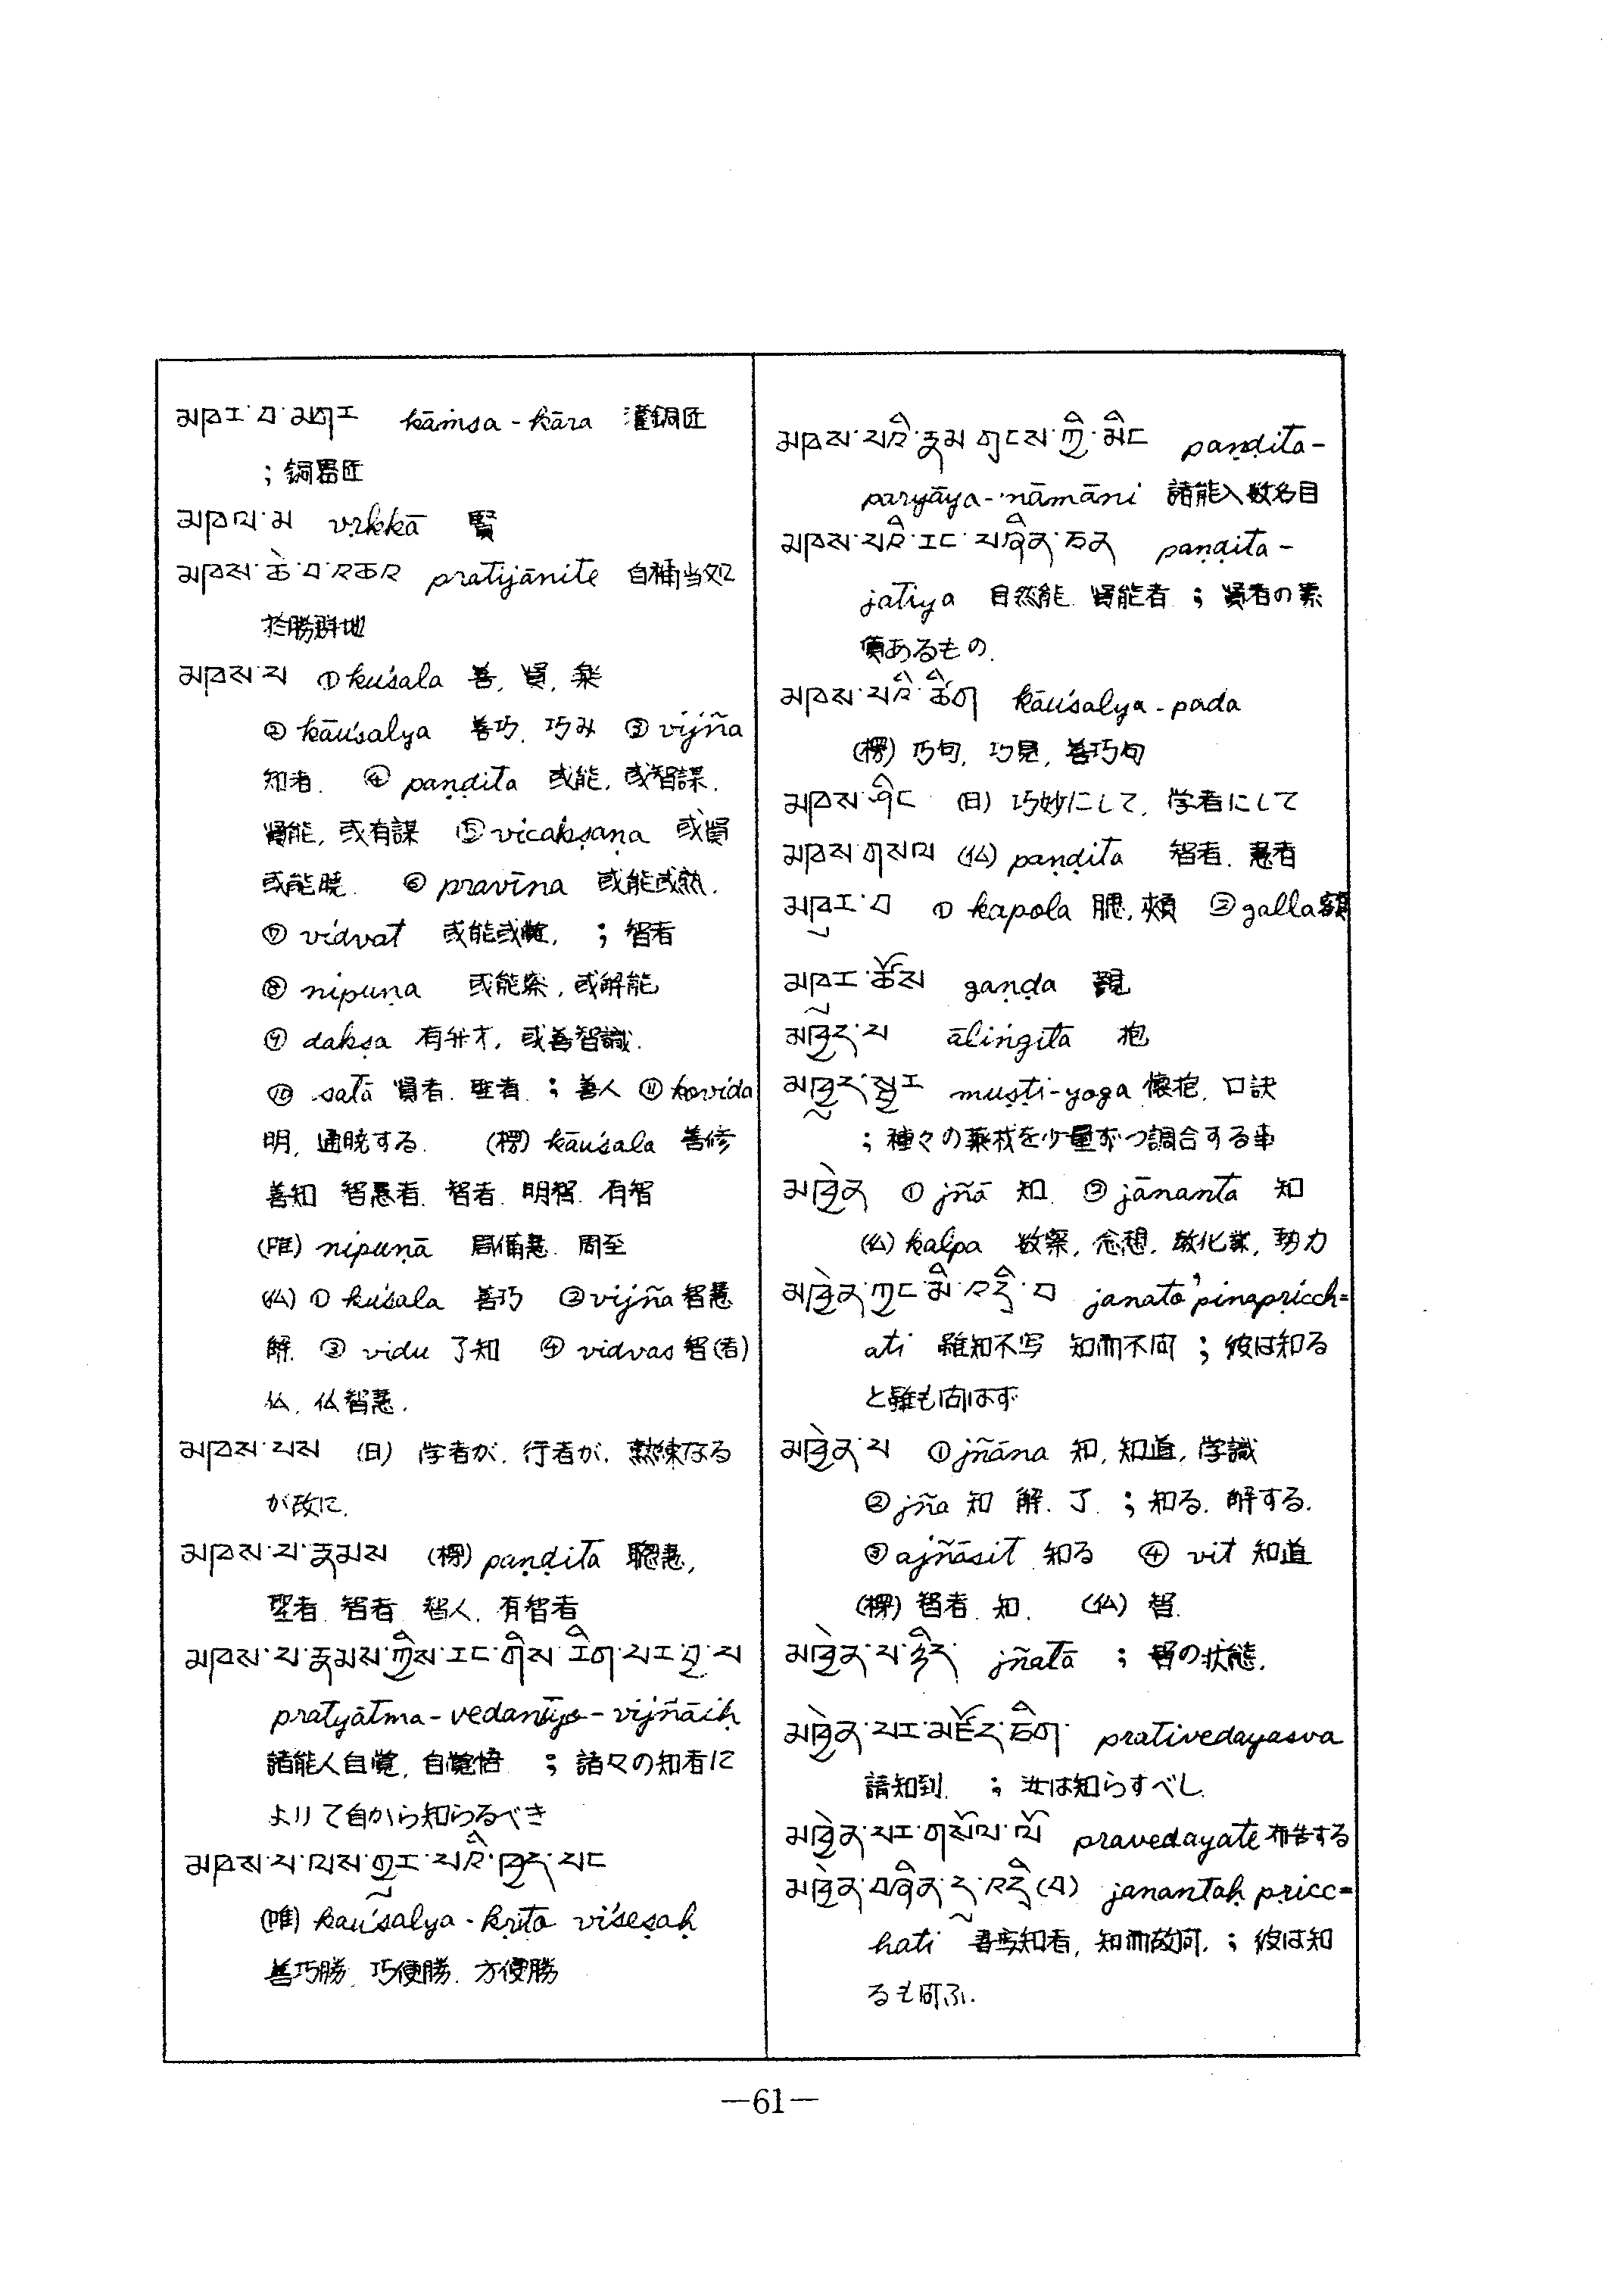 མཁར་བ་མཁན kāṁsa-kāra 灌銅匠
; 銅器匠
མཁལ་མ vṛkkā 賢
མཁས་ཆེ་བ་འཆའ pratijānite 自補当処
於勝群地
མཁས་པ ①kuśala 善, 賢, 楽
② kāuśalya 善巧, 巧み ③ vijña
知者. ④ paṇḍita 或能, 或智謀.
賢能, 或有謀 ⑤ vicakṣaṇa 或賢
或能暁. ⑥ pravīna 或能或熟.
⑦ vidvat 或能或 ; 智者
⑧ nipuṇa 或能察, 或解能
⑨ dakṣa 有弁才, 或善智識.
⑩ satā 賢者. 聖者 ; 善人 ⑪ kovida
明, 通暁する. (楞) kāuśala 善修
善知 智慧者. 智者. 明智. 有智
(唯) nipuṇā 周備慧. 周至
(仏) ① kuśala 善巧 ② vijña 智慧
解. ③ vidu 了知 ④ vidvas 智(者)
仏, 仏智慧.
མཁས་པས (日) 学者が, 行者が, 熟練なる
が故に.
མཁས་པ་རྣམས (楞) paṇḍita 聰慧,
聖者 智者 智人, 有智者
མཁས་པ་རྣམས་ཀྱིས་རང་གིས་རིག་པར་བྱ་བ
pratyātma-vedanīya-vijñāiḥ
諸能人自覚, 自覚悟 ; 諸々の知者に
よりて自から知らるべき
མཁས་པ་ལས་གྱུར་པའི་ཁྱད་པར
(唯) kauśalya-kṛita viśeṣaḥ
善巧勝, 巧便勝. 方便勝
མཁས་པའི་རྣམ་གྲངས་ཀྱི་མིང paṇḍita-
paryāya-nāmāni 諸能入数名目
མཁས་པའི་རང་བཞིན་ཅན paṇḍita-
jatiya 自然能 賢能者 ; 賢者の素
質あるもの.
མཁས་པའི་ཚིག kāuśalya-pada
(楞) 巧句, 巧見, 善巧句
མཁས་ཤིང (日) 巧妙にして, 学者にして
མཁས་གསལ (仏) paṇḍita 智者. 慧者
མཁུར་བ ① kapola 腮, 頰 ② galla 額
མཁུར་ཚོས gaṇḍa 親
མཁྱུད་པ ālingita 抱
མཁྱུད་སྤྱར muṣṭi-yoga 懐抱, 口訣
; 種々の薬材を少量ずつ調合する事
མཁྱེན ① jñā 知. ② jānanta 知
(仏) kalpa 数察, 念想. 教化業, 勢力
མཁྱེན་ཀྱང་མི་འདྲི་བ janato'pinapricch=
ati 雖知不写 知而不问 ; 彼は知る
と雖も问はず
མཁྱེན་པ ① jñāna 知, 知道, 学識
② jña 知 解. 了. ; 知る. 解する.
③ ajñāsit 知る ④ vit 知道
(楞) 智者. 知. (仏) 智.
མཁྱེན་པ་ཉིད jñatā ; 智の状態.
མཁྱེན་པར་མཛོད་ཅིག prativedayasva
請知到. ; 汝は知らすべし
མཁྱེན་པར་གསོལ་ལོ pravedayate 布告する
མཁྱེན་བཞིན་དུ་འདྲི(བ) janantaḥ pricc=
hati 知者, 知而故问. ; 彼は知
るも问ふ.
—61—